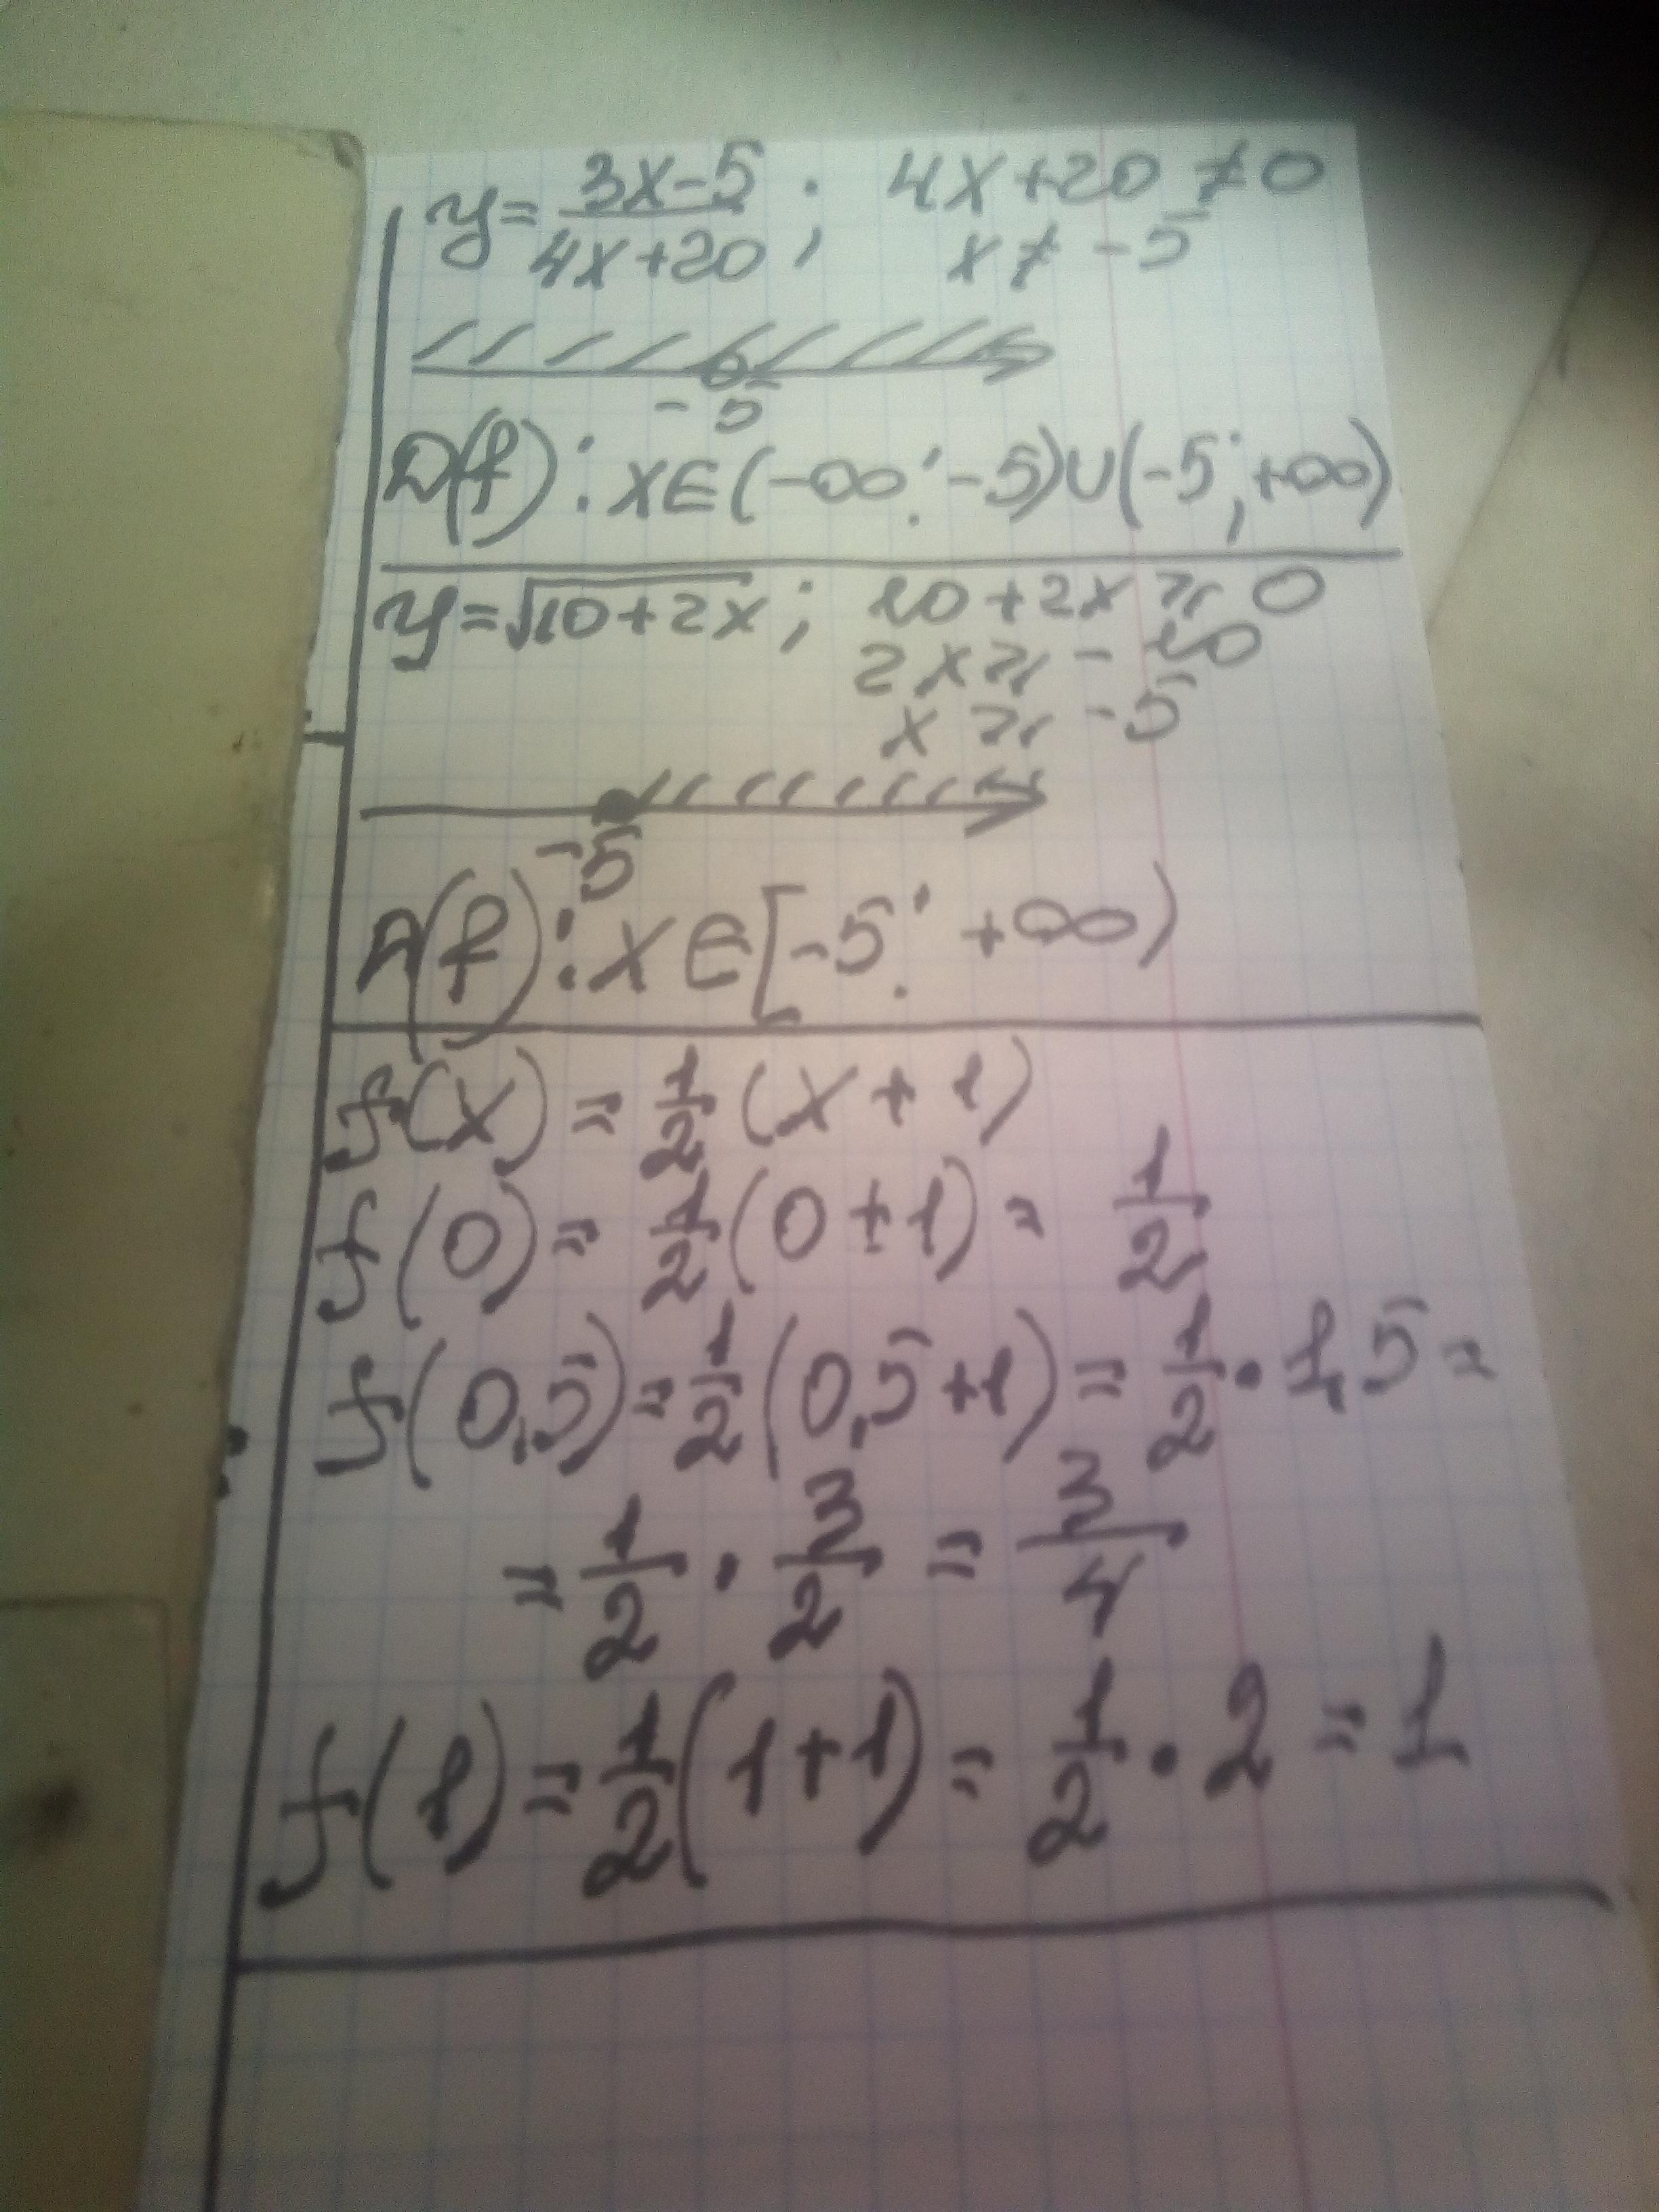 y = (3x-5)/(4x+20) ; 4x+20 ≠ 0
x ≠ -5
-5
D(f): x∈(-∞; -5)∪(-5; +∞)
y = √(10+2x) ; 10+2x ⩾ 0
2x ⩾ -10
x ⩾ -5
-5
D(f): x∈[-5; +∞)
f(x) = 1/2 (x+1)
f(0) = 1/2 (0+1) = 1/2
f(0,5) = 1/2 (0,5+1) = 1/2 · 1,5 =
= 1/2 · 3/2 = 3/4
f(1) = 1/2 (1+1) = 1/2 · 2 = 1